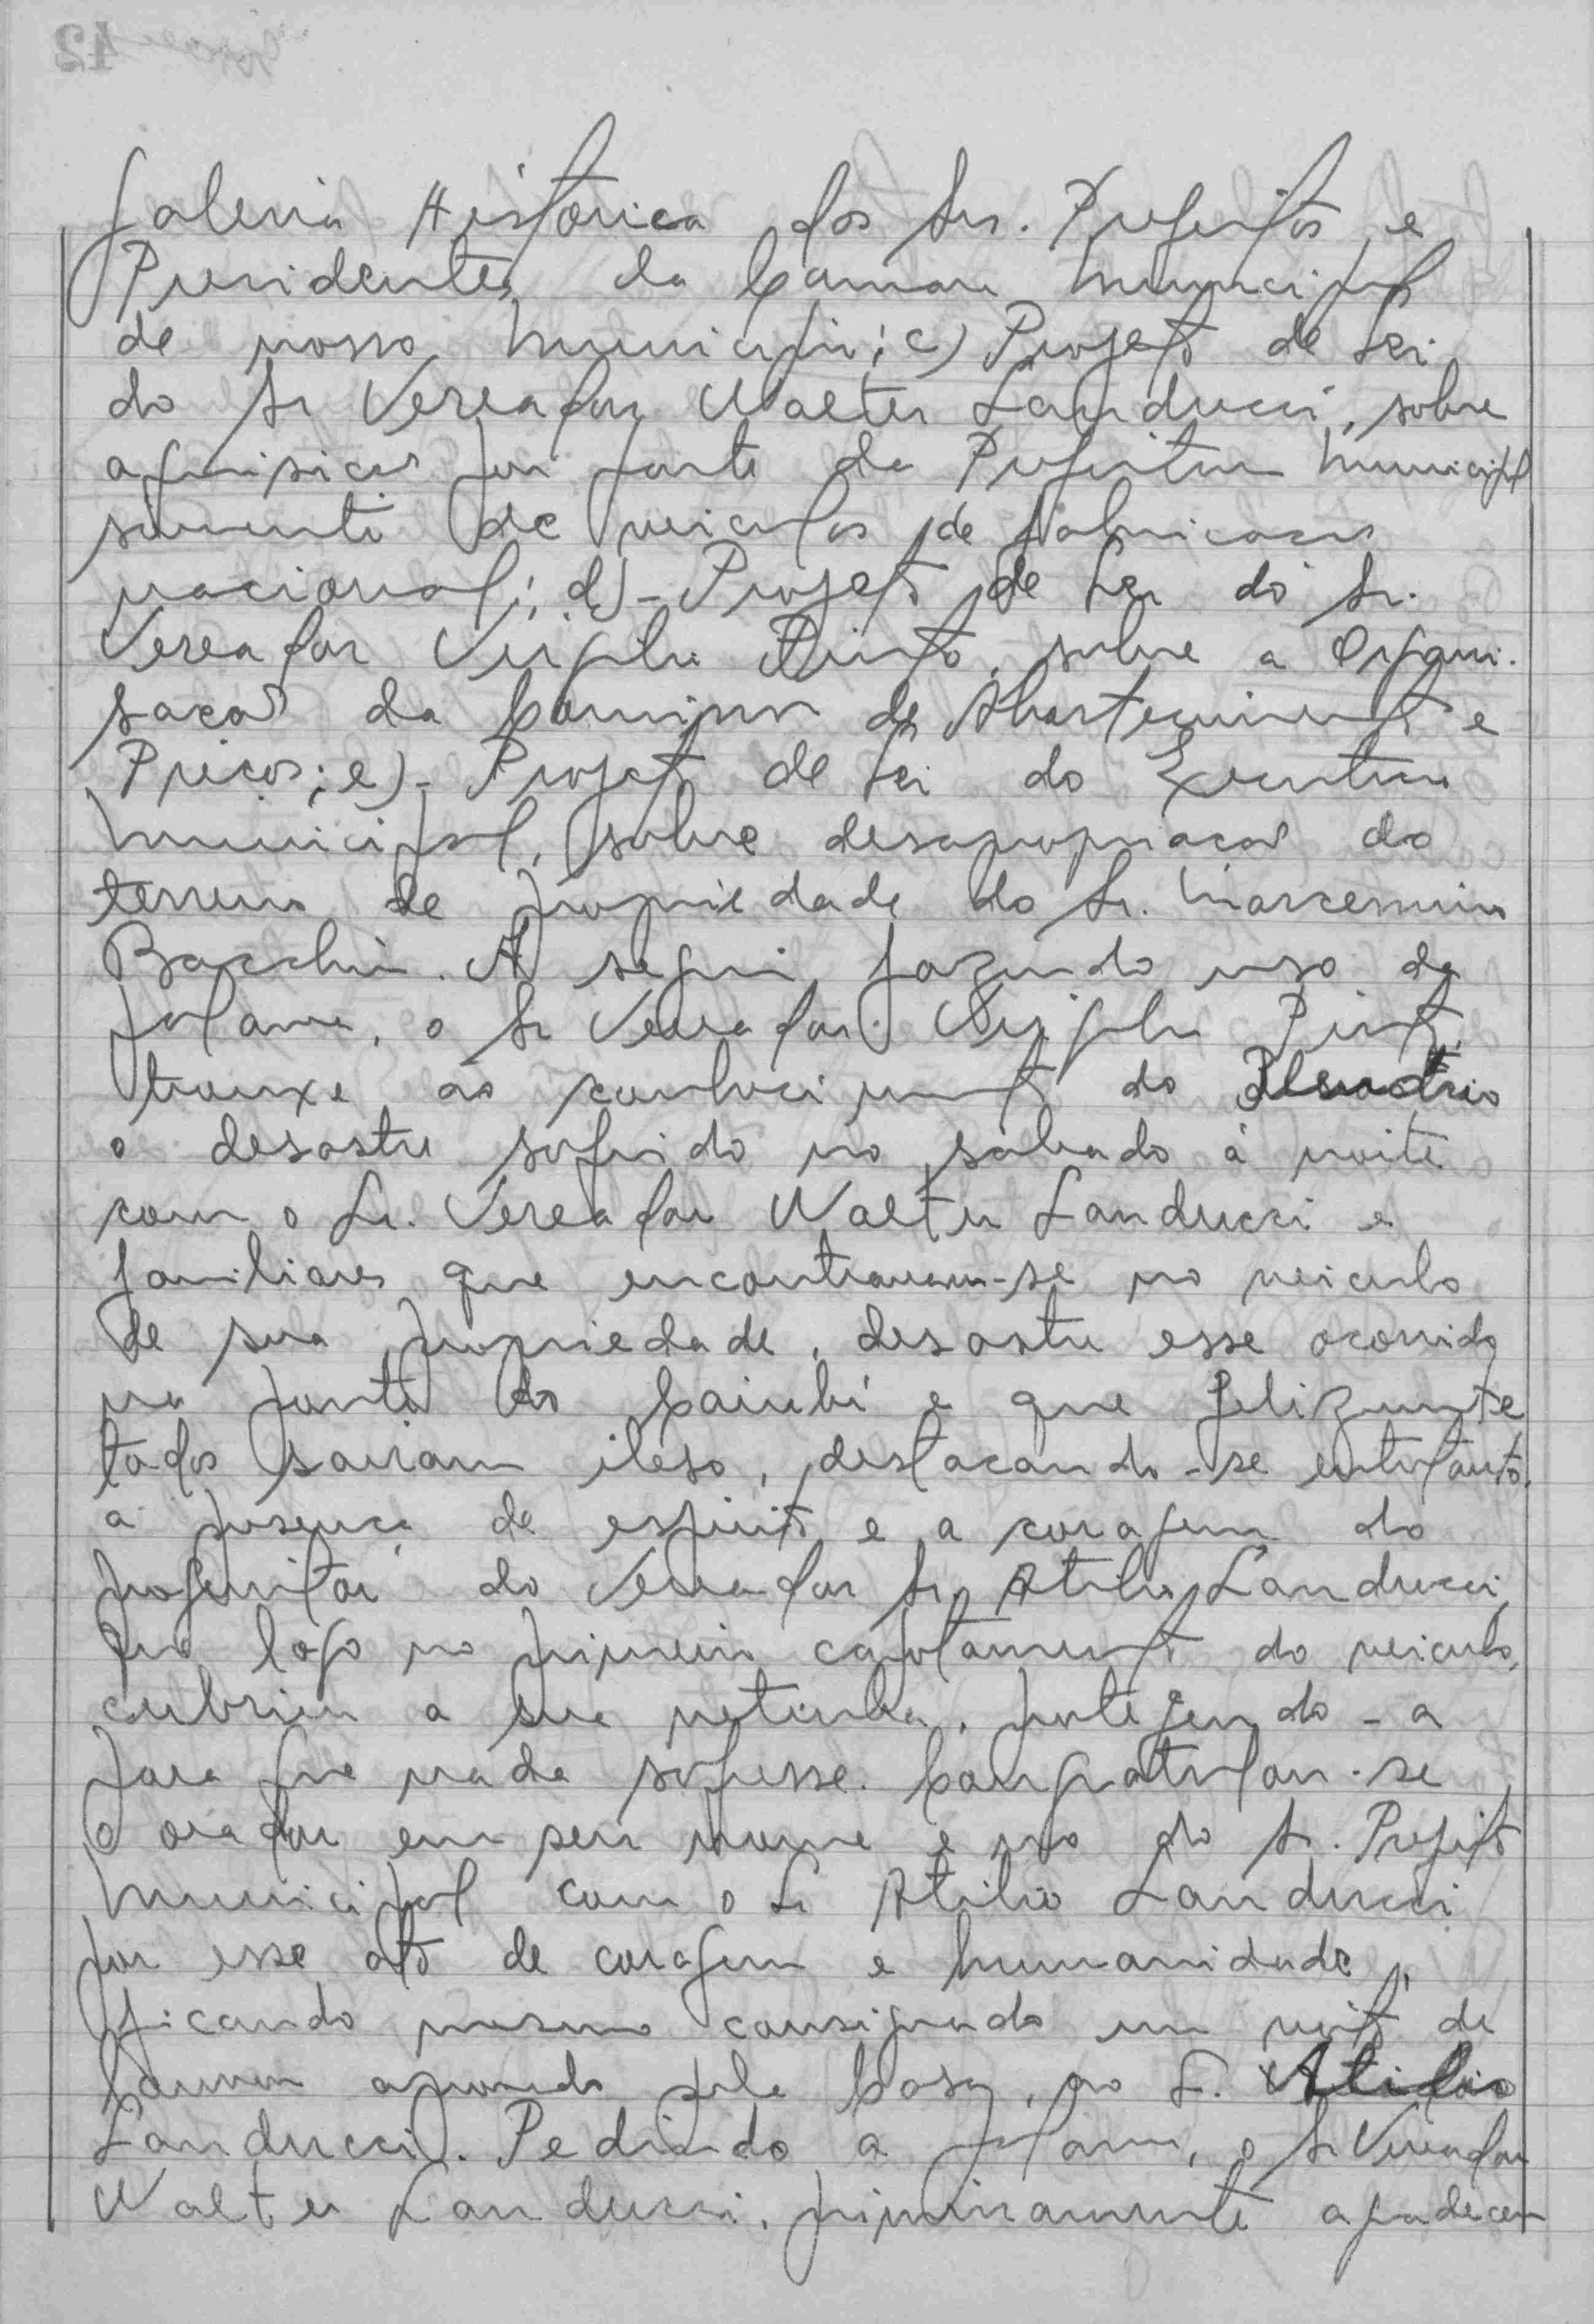 Galeria Historica dos Srs. Prefeitos e
Presidentes da Camara Municipal
de nosso Municipio; c) Projeto de Lei
do Sr Vereador Walter Landucci, sobre
aquisicao por parte da Prefeitura Municipal
somente de veiculos de fabricacao
nacional; d)- Projeto de Lei do Sr.
Vereador Virgilio Pinto, sobre a Organi-
sacao da Comissao de Abastecimento e
Precos; e)- Projeto de Lei do Executivo
Municipal, sobre desapropriacao do
terreno de propriedade do Sr.
Bacchin. A seguir fazendo uso da
palavra, o Sr Vereador Virgilio Pinto,
trouxe ao conhecimento do Plenário
o desastre sofrido no sabado à noite
com o Sr. Vereador Walter Landucci e
familiares que encontravam-se no veiculo
de sua propriedade, desastre esse ocorrido
na ponte do Caiubi e que felizmente
todos sairam ileso, destacando-se entretanto,
a presença de espirito e a coragem do
progenitor do Vereador Sr. Atilio Landucci,
que logo no primeiro capotamento do veiculo,
cubriu a sua netinha, protegendo-a
para que nada sofresse. Congratulou-se
o orador em seu nome e no do Sr. Prefeito
Municipal com o Sr Atilio Landucci
por esse ato de coragem e humanidade,
ficando mesmo consignado um voto de
louvor aprovado pela Casa, ao Sr. Atilio
Landucci. Pedindo a palavra, o Sr Vereador
Walter Landucci, primeiramente agradeceu